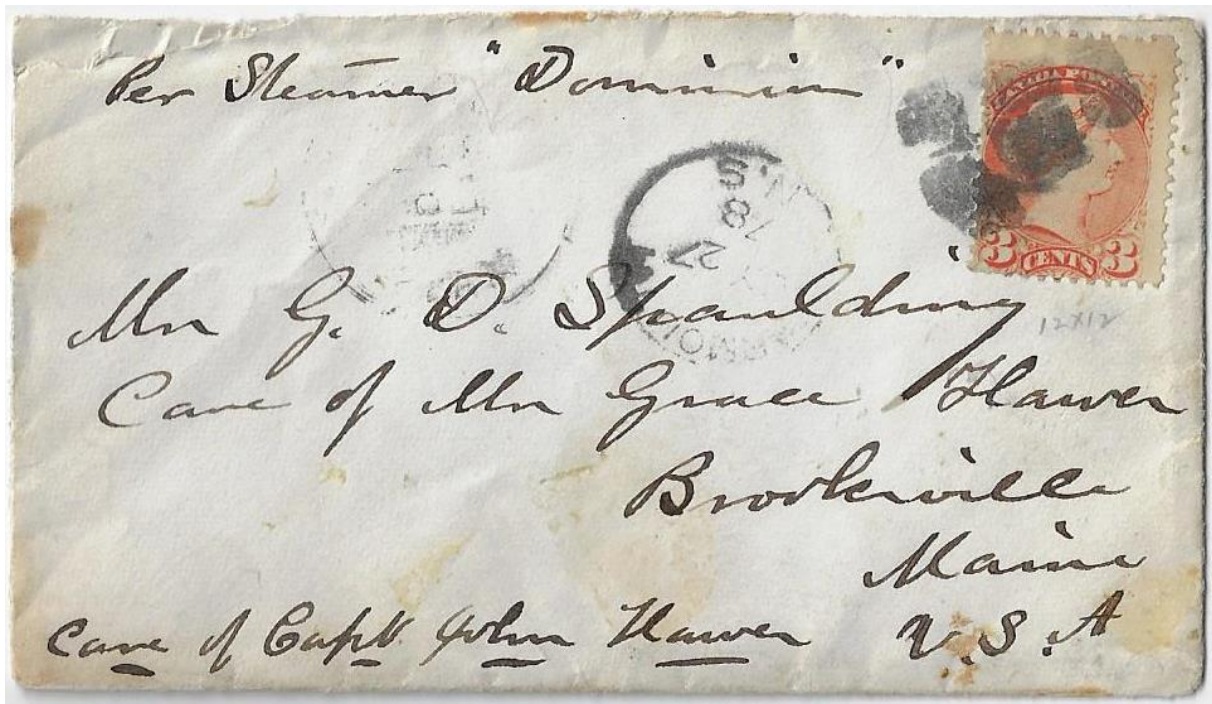 Per Steamer "Dominion"
CANADA POSTAGE
3 CENTS 3
N.S
27
78
ARMOU
12x12
Mr G. D. Spaulding
Care of Mr Grace Hawes
Brooksville
Maine
U.S.A
Care of Capt. John Hawes